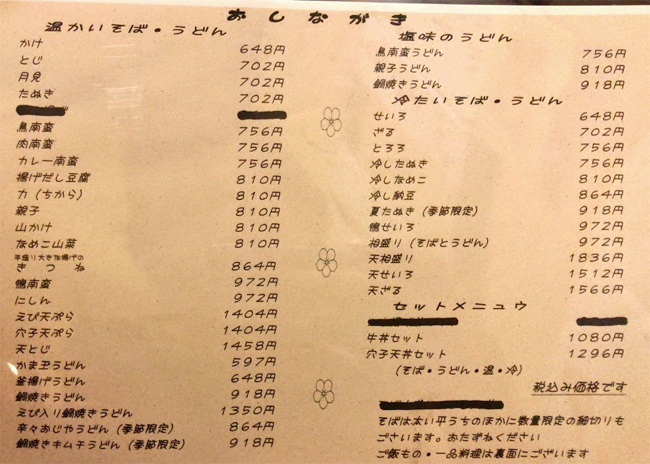 おしながき
温かいそば・うどん
かけ 648円
とじ 702円
月見 702円
たぬき 702円
鳥南蛮 756円
肉南蛮 756円
カレー南蛮 756円
揚げだし豆腐 810円
力(ちから) 810円
親子 810円
山かけ 810円
なめこ山菜 810円
手造り大きな揚げの
きつね 864円
鴨南蛮 972円
にしん 972円
えび天ぷら 1404円
穴子天ぷら 1404円
天とじ 1458円
かま玉うどん 597円
釜揚げうどん 648円
鍋焼きうどん 918円
えび入り鍋焼きうどん 1350円
辛々おじやうどん(季節限定) 864円
鍋焼きキムチうどん(季節限定) 918円
塩味のうどん
鳥南蛮うどん 756円
親子うどん 810円
鍋焼きうどん 918円
冷たいそば・うどん
せいろ 648円
ざる 702円
とろろ 756円
冷したぬき 756円
冷しなめこ 810円
冷し納豆 864円
夏たぬき(季節限定) 918円
鴨せいろ 972円
相盛り(そばとうどん) 972円
天相盛り 1836円
天せいろ 1512円
天ざる 1566円
セットメニュウ
牛丼セット 1080円
穴子天丼セット 1296円
(そば・うどん・温・冷)
税込み価格です
そばは太い平うちのほかに数量限定の細切りも
ございます。おたずねください
ご飯もの・一品料理は裏面にございます